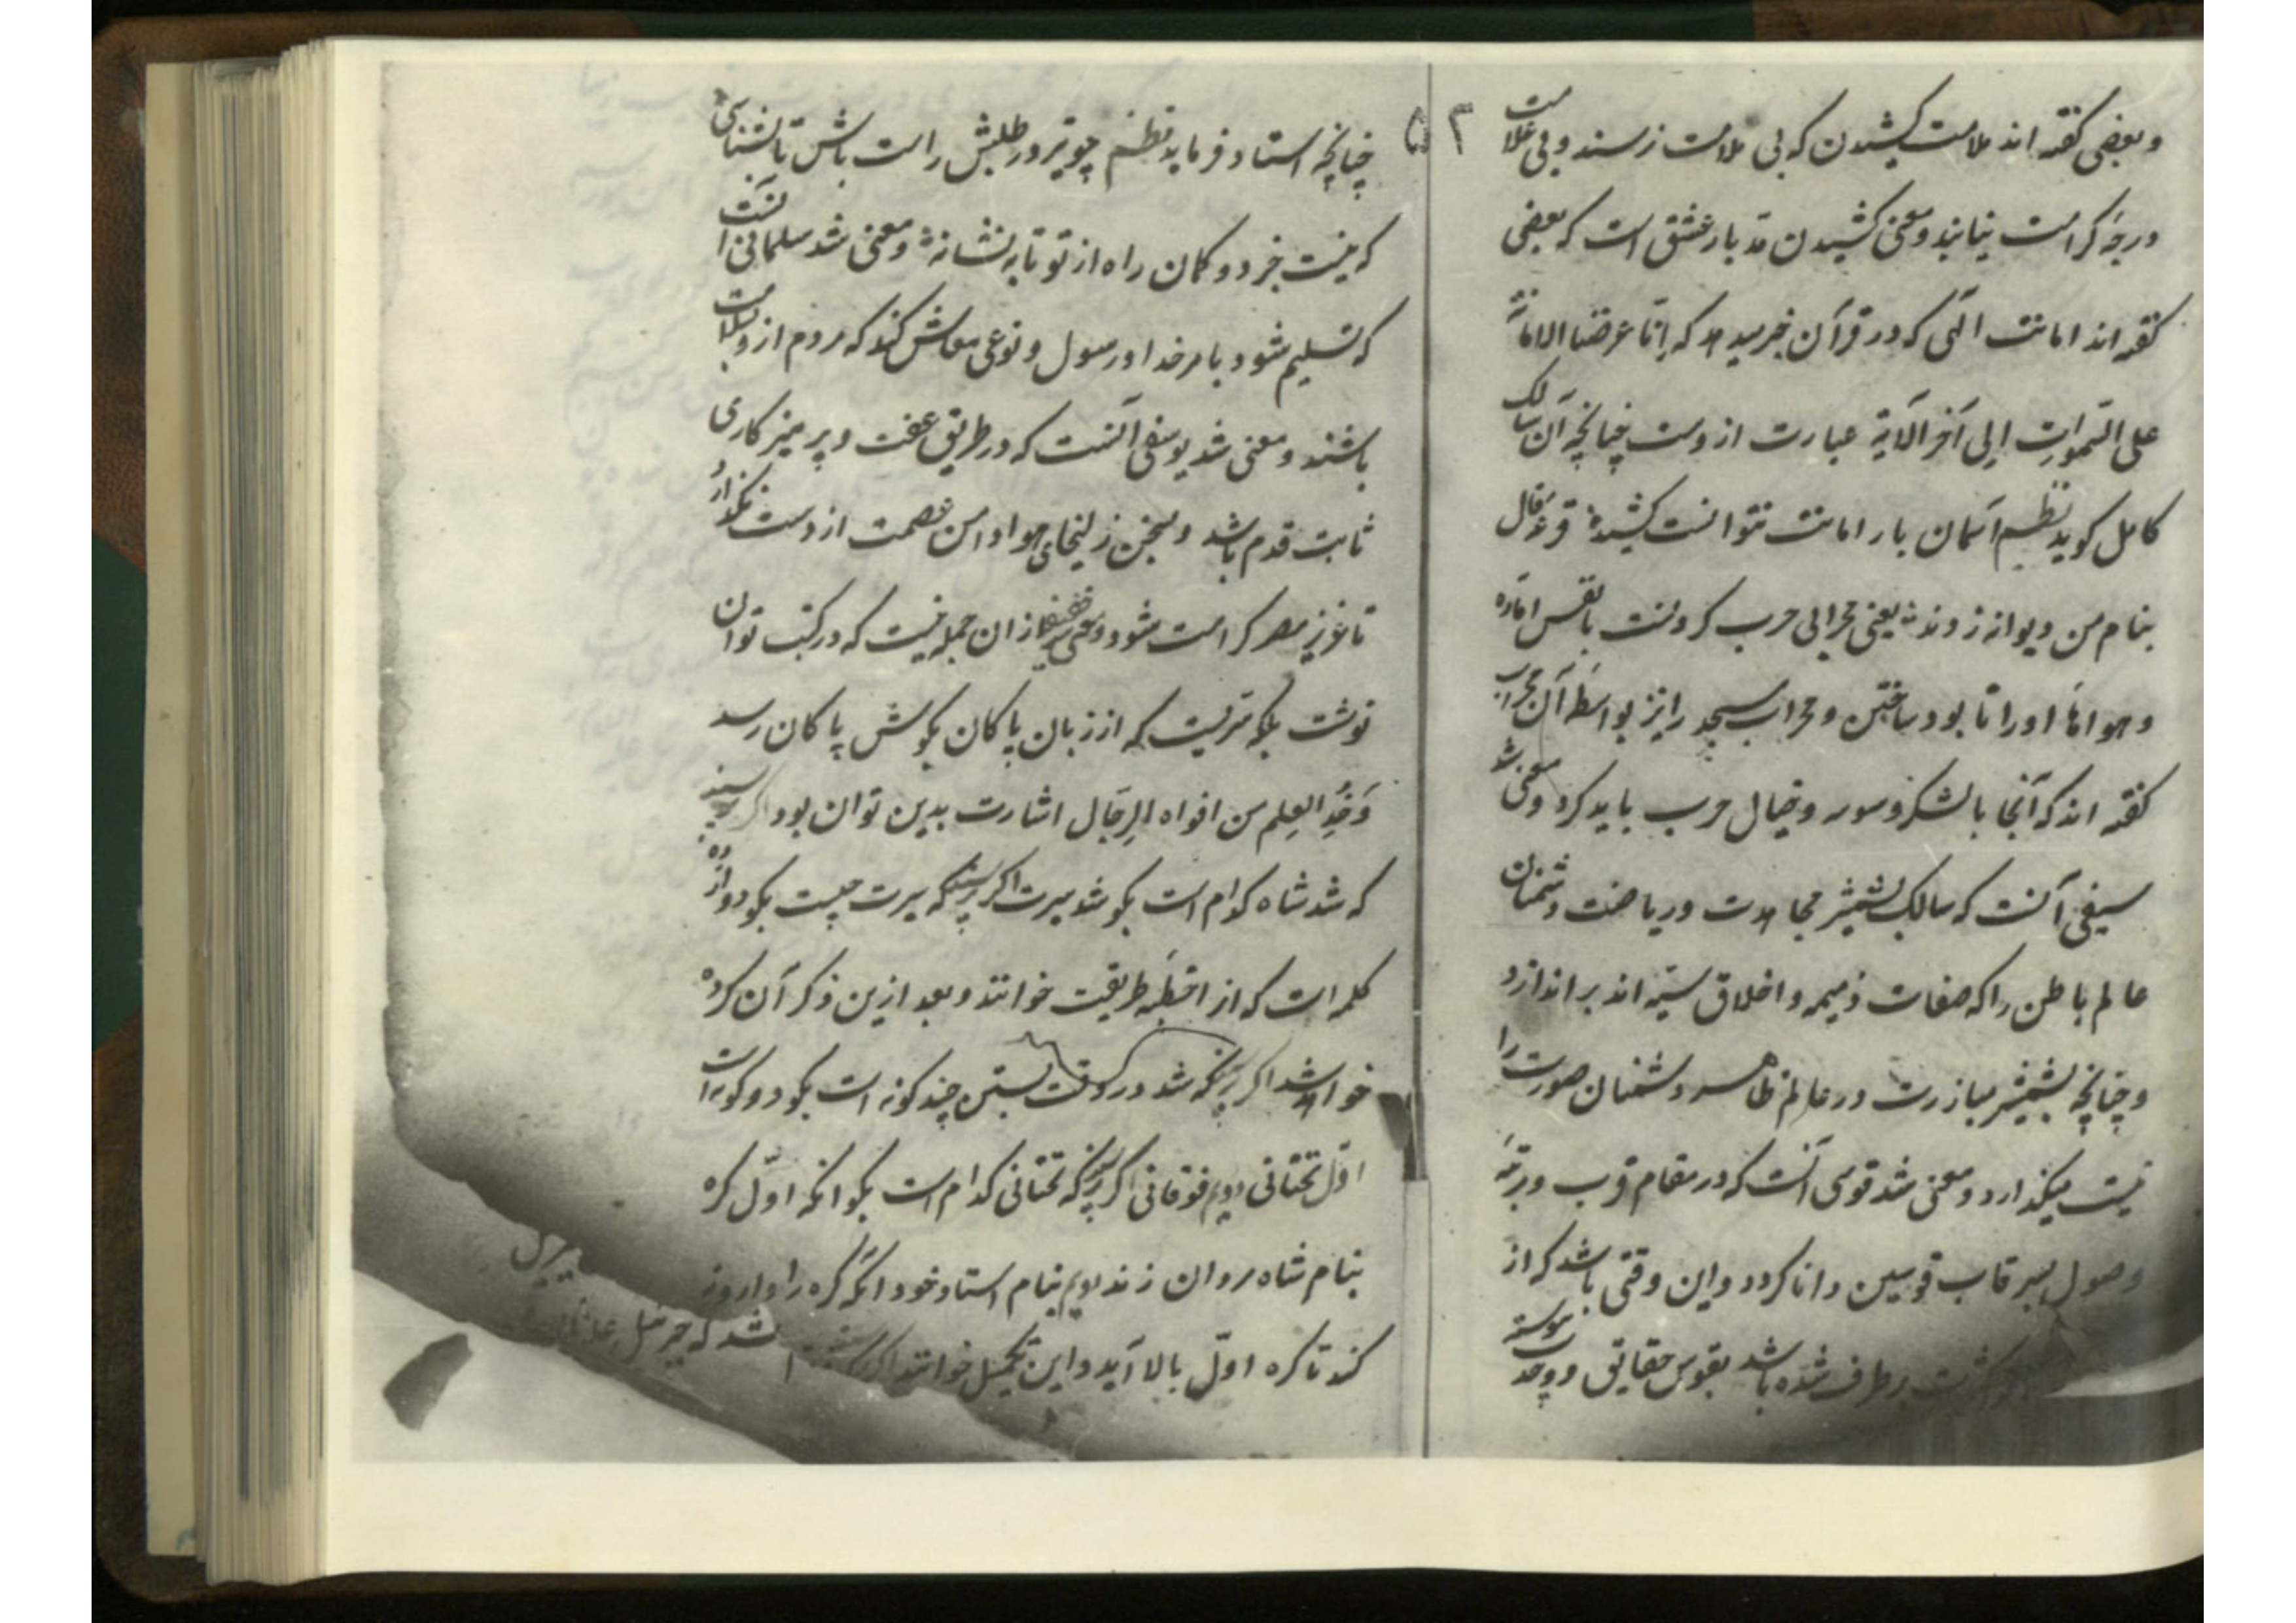 و بعضی گفته اند ملامت کشیدن که بی ملامت نرسند و بی غلامت
درجه کرامت نیابند و معنی کشیدن مد بار عشق است که بعضی
گفته اند امانت الهی که در قرآن خبر میدهد که انّا عرضنا الامانة
علی السّموات الی آخر الآیة عبارت ازوست چنانچه آن سالک
کامل کوید نظم آسمان بار امانت نتوانست کشید قرعه فال
بنام من دیوانه زدند یعنی محرابی حرب کردنست با نفس اماره
و هوا اما اورا نابود ساختن و محراب مسجد را نیز بواسطه آن محراب
گفته اند که آنجا با لشکر وسوسه و خیال حرب باید کرد و معنی شد
سیفی آنست که سالک بشمشیر مجاهدت و ریاضت دشمنان
عالم باطن را که صفات ذمیمه و اخلاق سیّئه اند براندازد
و چنانچه بشمشیر مبارزت در عالم ظاهر دشمنان صورت را
نیست میکند ارد و معنی شد قوسی آنست که در مقام قرب و مرتبه
وصول بسر قاب قوسین دانا کردد و این وقتی باشد که از
برطرف شده باشد بقوس حقایق و وحدت پیوسته
۵۳
چنانچه استاد فرماید نظم چو تیر در طلبش راست باش تا بشناسی
که نیست جز دو کمان راه از تو تا به نشانه و معنی شد سلمانی آنست
که تسلیم شود بامر خدا و رسول و نوعی معاش کند که مردم ازو بسلامت
باشند و معنی شد یوسفی آنست که در طریق عفت و پرهیزکاری
ثابت قدم باشد و بسخن زلیخای هوا دامن عصمت از دست نگذارد
تا عزیز مصر کرامت شود و معنی شد ازان جمله نیست که در کتب توان
نوشت بلکه سریست که از زبان پاکان بکوش پاکان رسد
وَ خُذِ العِلم من افواه الرِجَال اشارت بدین توان بود اگر پرسند
که شد شاه کدام است بگو شد سیرت اگر پرسند که سیرت چیست بگو دوازده
کلمه است که از اخطبه طریقت خوانند و بعد ازین ذکر آن کرده
خواهد شد اگر پرسند که شد در وقت بستن چند کونه است بگو دو کونه است
اوّل تحتانی دویم فوقانی اگر پرسند که تحتانی کدام است بگو آنکه اوّل کره
بنام شاه مردان زند دویم بنام استاد خود آنکه کره را وا روز
کند تا کره اوّل بالا آید و این تکمیل خوانند اگر
شد که جبرئیل